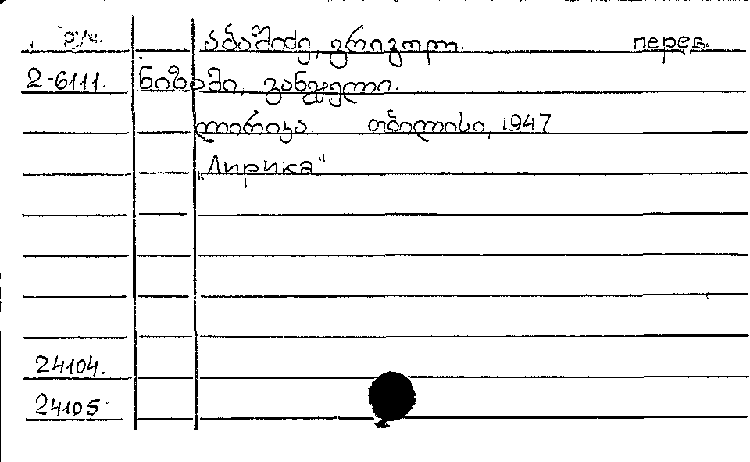 აბაშიძე, გრიგოლ. перев.
2-6111. ნიზამი, განჯელი.
ლირიკა თბილისი, 1947
„Лирика“
24104.
24105.